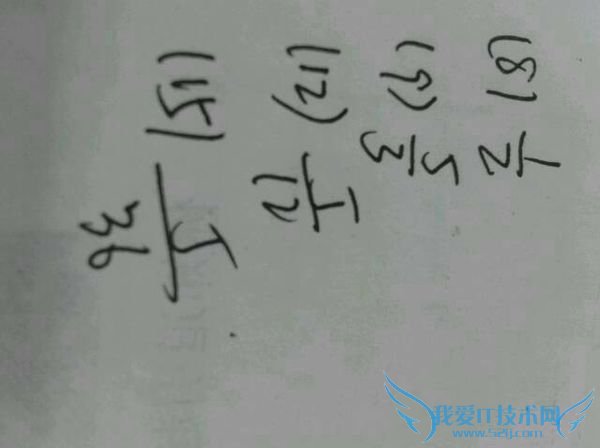 (8) 1/2
(9) 5/3
(12) 1/12
(15) 1/36
我爱IT技术网
www.52ij.com